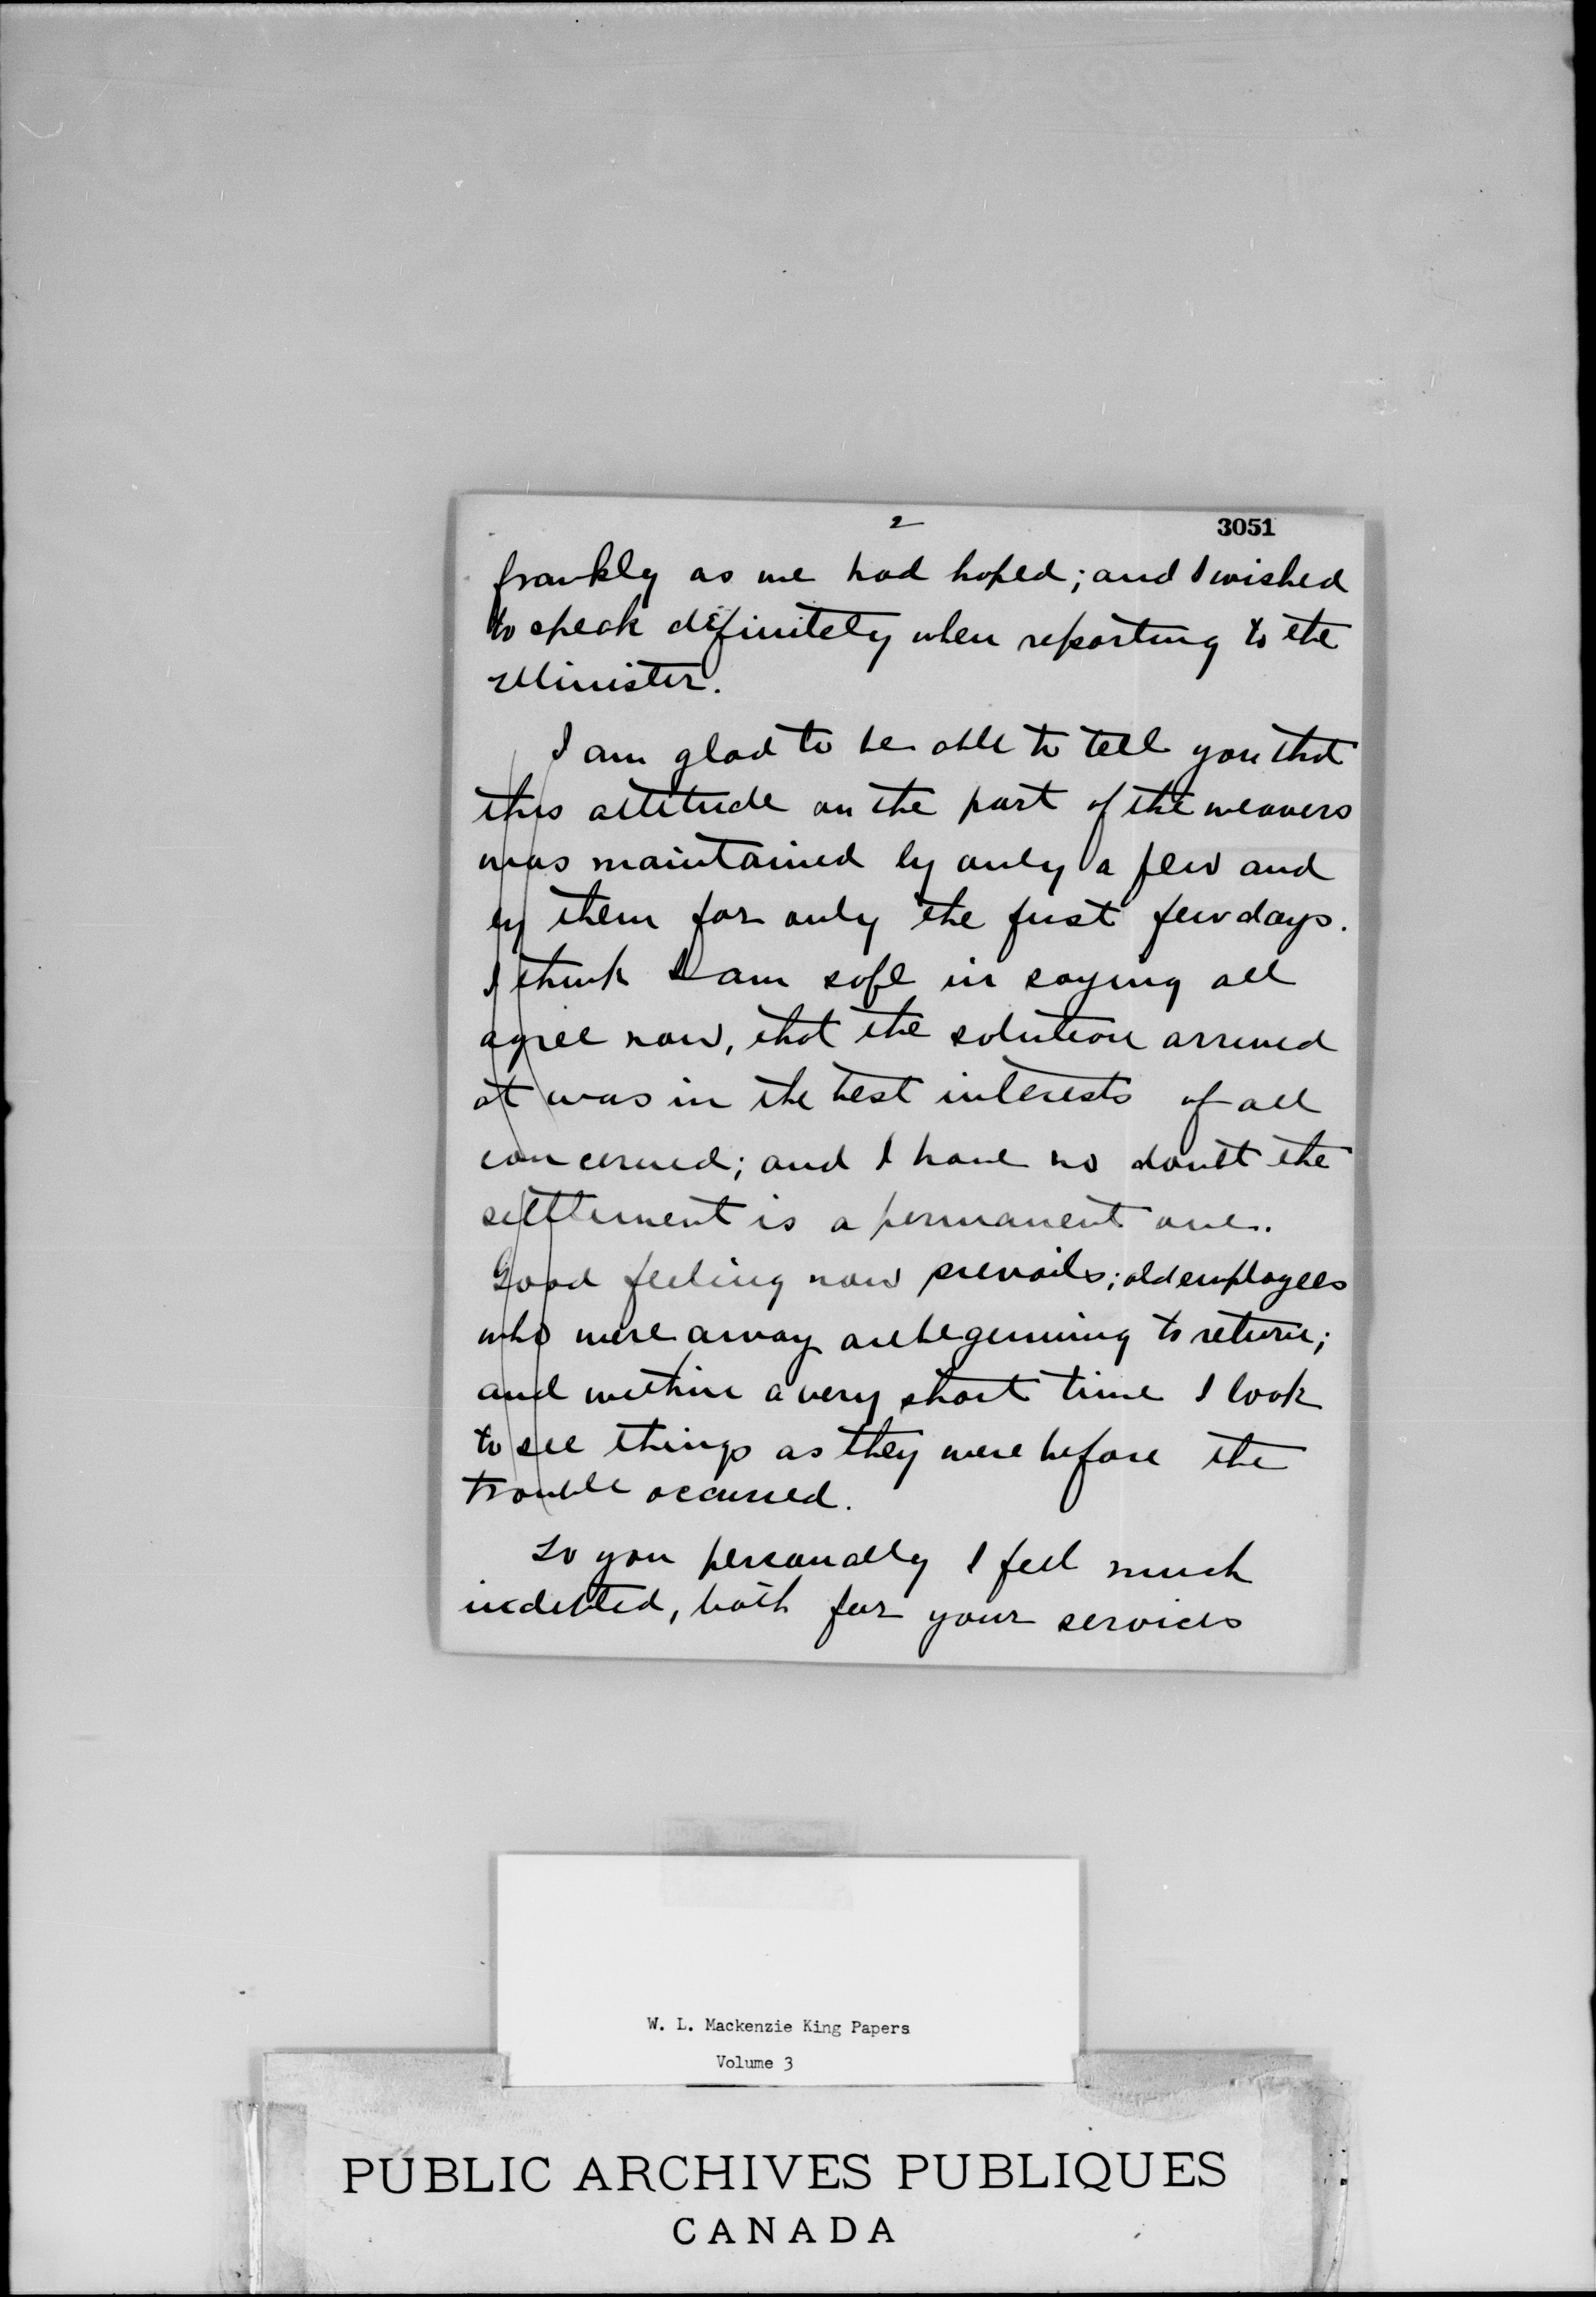 2
3051
frankly as we had hoped; and I wished
to speak definitely when reporting to the
Minister.
I am glad to be able to tell you that
this attitude on the part of the weavers
was maintained by only a few and
by them for only the first few days.
I think I am safe in saying all
agree now, that the solution arrived
at was in the best interests of all
concerned; and I have no doubt the
settlement is a permanent one.
Good feeling now prevails; old employees
who were away are beginning to return;
and within a very short time I look
to see things as they were before the
trouble occurred.
To you personally I feel much
indebted, both for your services
W. L. Mackenzie King Papers
Volume 3
PUBLIC ARCHIVES PUBLIQUES
CANADA